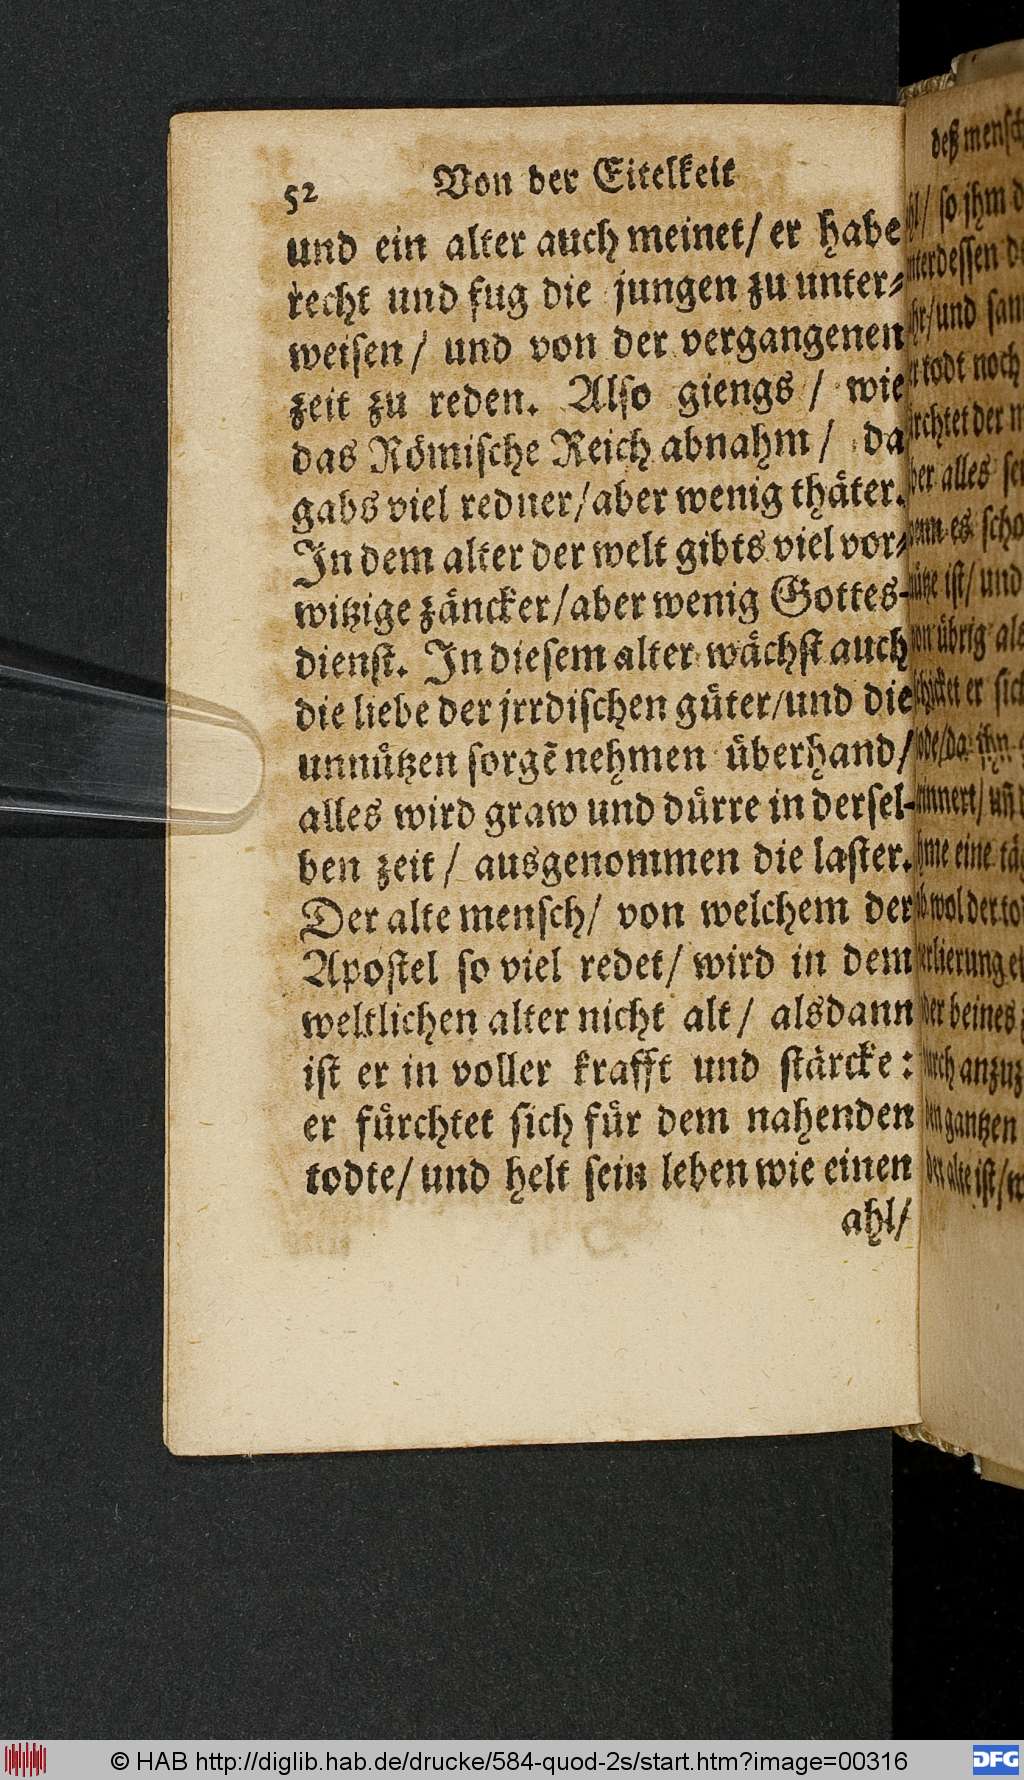 52 Von der Eitelkeit
und ein alter auch meinet/ er habe
recht und fug die jungen zu unter⸗
weisen/ und von der vergangenen
zeit zu reden. Also giengs/ wie
das Römische Reich abnahm/ da
gabs viel redner/ aber wenig thäter.
In dem alter der welt gibts viel vor⸗
witzige zäncker/ aber wenig Gottes-
dienst. In diesem alter wächst auch
die liebe der jrrdischen güter/ und die
unnützen sorgẽ nehmen überhand/
alles wird graw und dürre in dersel-
ben zeit/ ausgenommen die laster.
Der alte mensch/ von welchem der
Apostel so viel redet/ wird in dem
weltlichen alter nicht alt/ alsdann
ist er in voller krafft und stärcke:
er fürchtet sich für dem nahenden
todte/ und helt sein leben wie einen
ahl/
deß
/ so jhm
/und
todt noch
der
alles
es
ist/ und
übrig als
er
eine
wol der
beines
anzuz
gantzen
alte ist/
© HAB http://diglib.hab.de/drucke/584-quod-2s/start.htm?image=00316
DFG